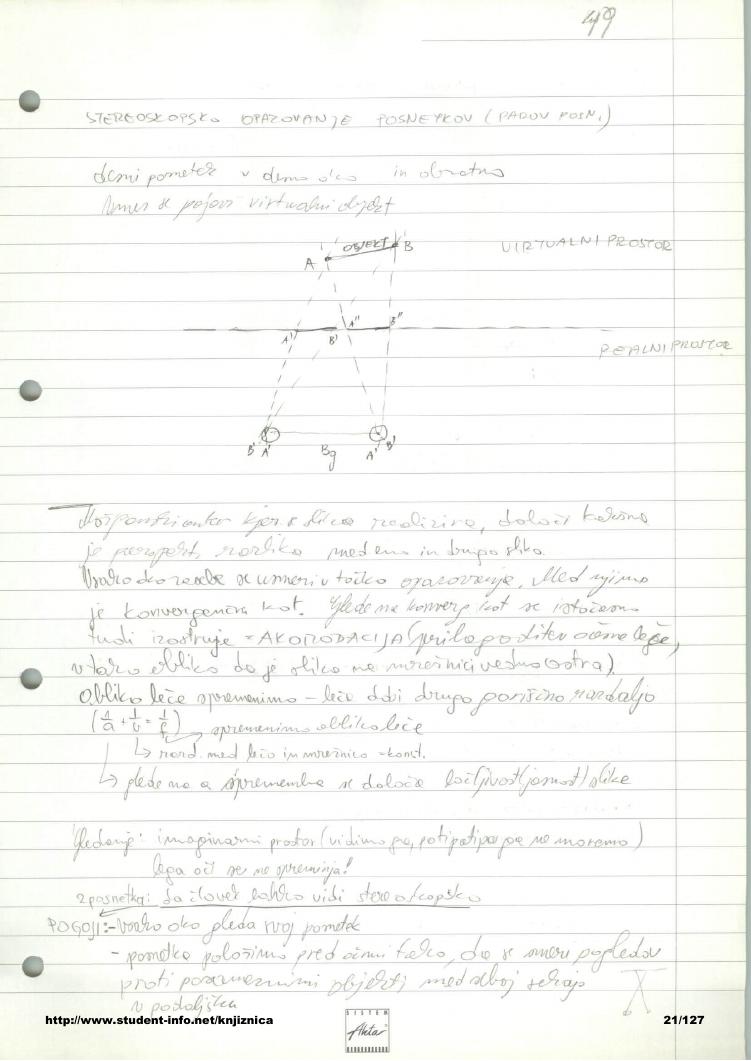 49
STEREOSKOPSKO OPAZOVANJE POSNETKOV (PAROV POSN.)
desni posnetek v desno oko in obratno
vmes se pojavi virtualni objekt
OBJEKT
A B
VIRTUALNI PROSTOR
A' B' A'' B''
REALNI PROSTOR
B' A' Bg A' B'
kjer se slika realizira, določi kakšna
je razlika med eno in drugo sliko.
Vsako oko zase se usmeri v točko opazovanja. Med njima
je konvergenčni kot. Glede na konverg. kot se istočasno
tudi izostruje = AKOMODACIJA (prilagoditev očesne leče,
v tako obliko da je slika na mrežnici vedno ostra).
Obliko leče spremenimo – leča dobi drugo goriščno razdaljo
(1/a + 1/b = 1/f) spremenimo obliko leče
↳ razd. med lečo in mrežnico = konst.
↳ glede na a spremembe se določa ločljivost (jasnost) slike
Gledanje: imaginarni prostor (vidimo ga, potipati pa ga ne moremo)
lega oči se ne spreminja!
2 posnetka: da človek lahko vidi stereoskopsko
POGOJI: - vsako oko gleda svoj posnetek
- posnetka položimo pred očmi tako, da se smeri pogledov
proti posameznimi objekti med seboj sekajo
v podaljšku
http://www.student-info.net/knjiznica
SISTEM
Aktar
21/127